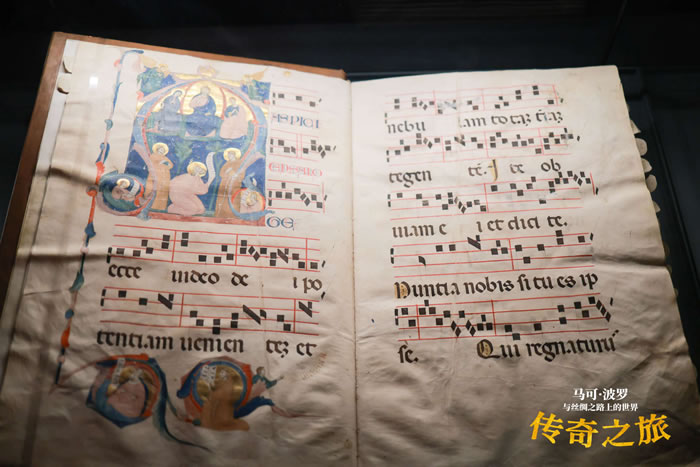 ASPICI
ENS A LO
GE
ecce video de i po
tentiam venien tez et
nebu lam totaz t̄raz
tegen tē. I te ob
uiam e i et dici te.
Nuntia nobis si tu es ip
se. Qui regnaturꝰ
马可·波罗
与丝绸之路上的世界
传奇之旅